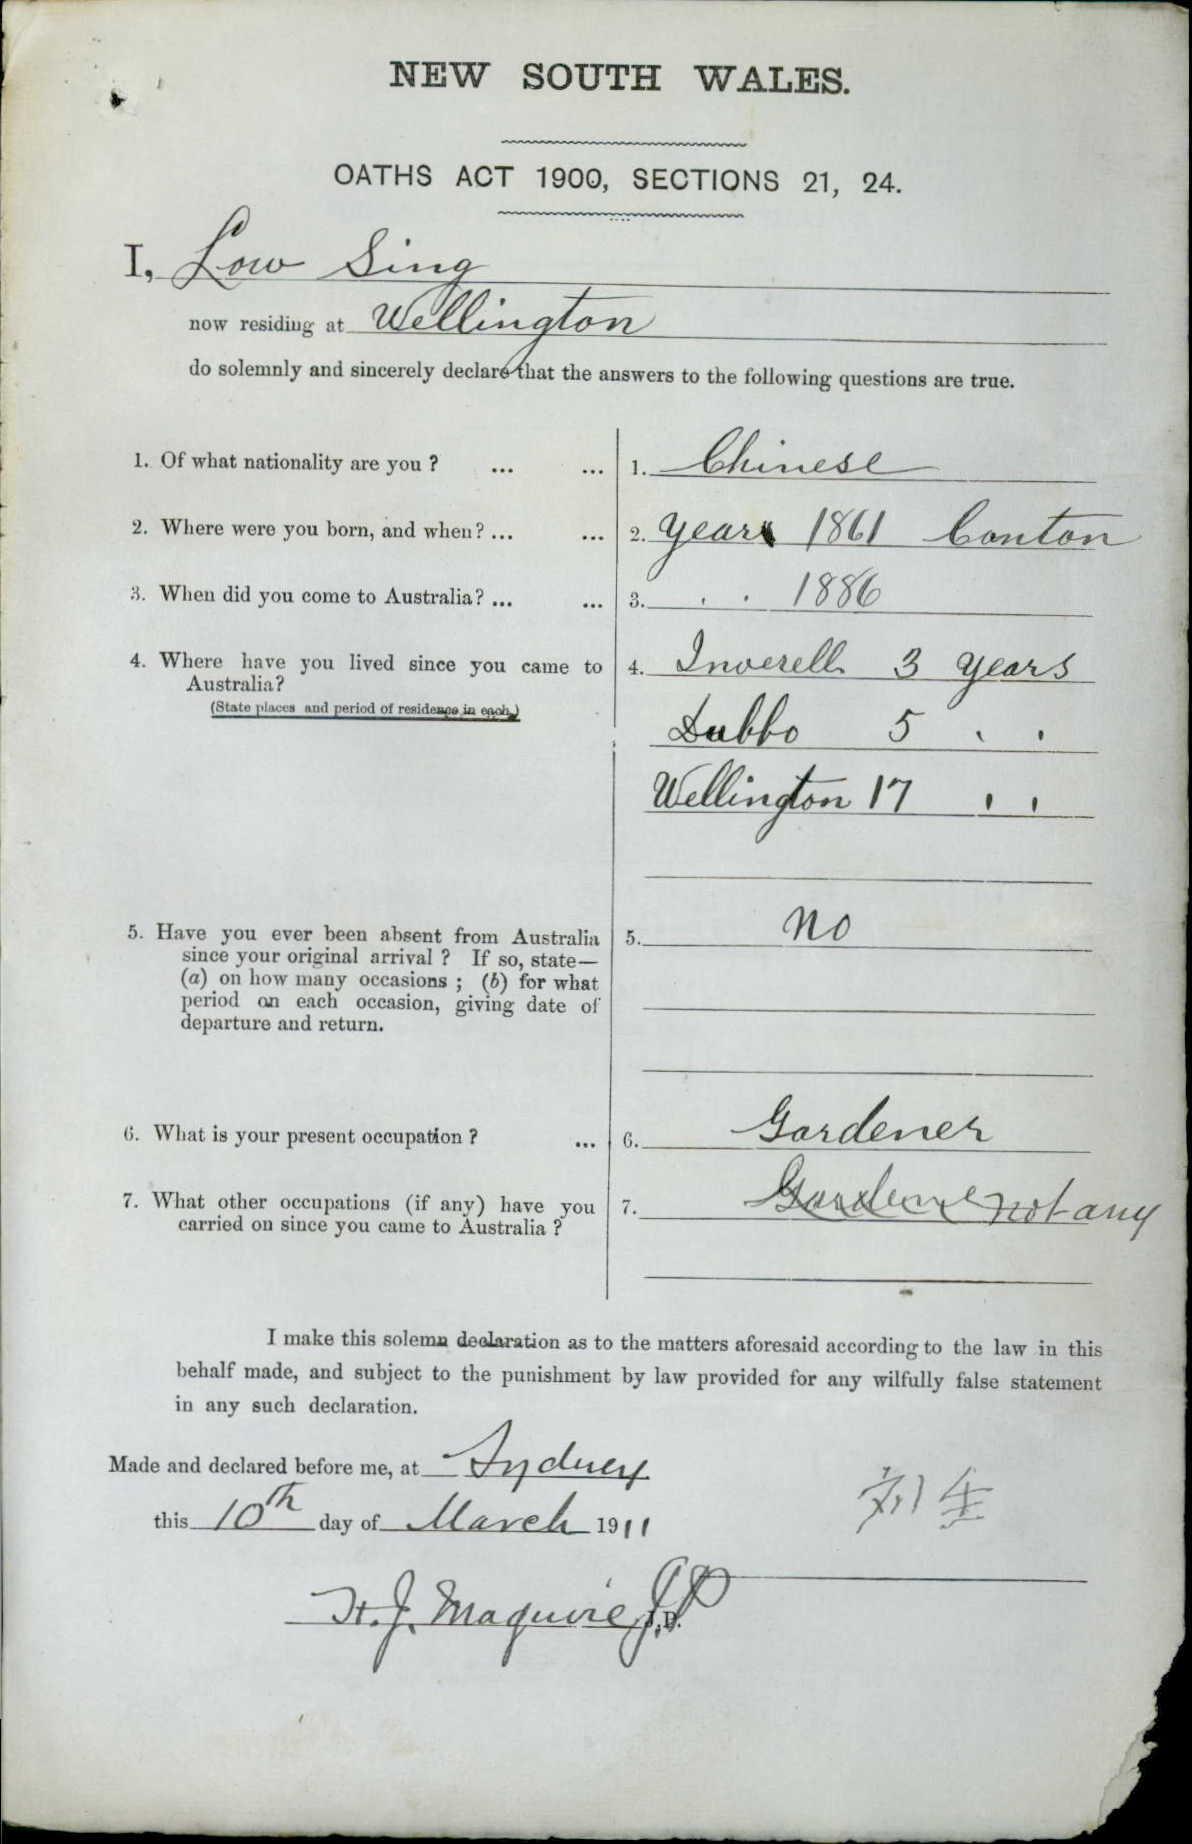 NEW SOUTH WALES.
OATHS ACT 1900, SECTIONS 21, 24.
I, Low Sing
now residing at Wellington
do solemnly and sincerely declare that the answers to the following questions are true.
1. Of what nationality are you ? ... ... 1. Chinese
2. Where were you born, and when? ... ... 2. Year 1861 Canton
3. When did you come to Australia? ... ... 3. . . 1886
4. Where have you lived since you came to 4. Inverell 3 years
Australia?
(State places and period of residence in each.)
Dubbo 5 . .
Wellington 17 . .
5. Have you ever been absent from Australia 5. No
since your original arrival ? If so, state—
(a) on how many occasions ; (b) for what
period on each occasion, giving date of
departure and return.
6. What is your present occupation ? ... 6. Gardener
7. What other occupations (if any) have you 7. Gardene not any
carried on since you came to Australia ?
I make this solemn declaration as to the matters aforesaid according to the law in this
behalf made, and subject to the punishment by law provided for any wilfully false statement
in any such declaration.
Made and declared before me, at Sydney
this 10th day of March 1911
刘生
H. J. Maguire JP J.P.